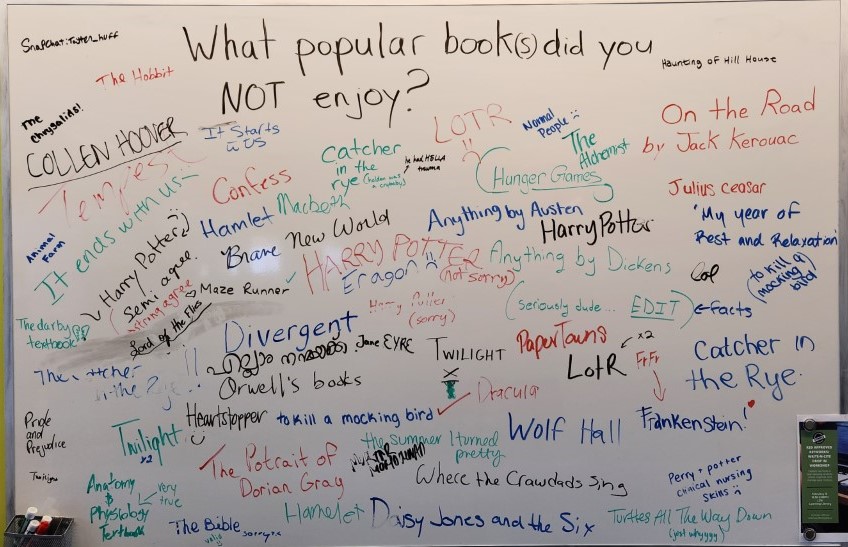 SnapChat: Tatter_huff
What popular book(s) did you
NOT enjoy?
Haunting of Hill House
The Hobbit
the
chrysalids!
COLLEN HOOVER
It Starts
w US
Catcher
in the
rye
he had HELLA
trauma
LOTR
Normal
People
The
Alchemist
On the Road
by Jack Kerouac
Tempest
Confess
Macbeth
Hunger Games
Julius ceasar
It ends with us
Hamlet
Anything by Austen
Harry Potter
'My year of
Rest and Relaxation'
Animal
Farm
Harry Potter
Semi agree.
(strong agree
Brave New World
HARRY POTTER
(not sorry)
Eragon
Anything by Dickens
(seriously dude... EDIT)
← facts
(to kill a
mocking
bird)
Maze Runner
Harry Potter
(sorry)
The darby
textbook
Lord of the Flies
Divergent
Jane EYRE
TWILIGHT
Paper Towns
LotR
x2
FrFr
Catcher in
the Rye.
The Catcher
in the Rye!
!!
Orwell's books
Dracula
Pride
and
Prejudice
Heartstopper
to kill a mocking bird
Frankenstein!
Twilight
x2
The Potrait of
Dorian Gray
the summer I turned
pretty
Wolf Hall
Where the Crawdads Sing
Perry + potter
clinical nursing
skills
Anatomy
&
Physiology
Textbook
very
true
The Bible
valid
sorry
Hamelet
Daisy Jones and the Six
Turtles All The Way Down
(just whyyyy)